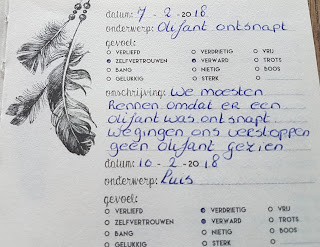 datum: 7 - 2 - 2018
onderwerp: Olifant ontsnapt
gevoel:
VERLIEFD VERDRIETIG VRIJ
ZELFVERTROUWEN VERWARD TROTS
BANG NIETIG BOOS
GELUKKIG STERK
omschrijving: we moesten
Rennen omdat er een
olifant was ontsnapt
we gingen ons verstoppen
geen olifant gezien
datum: 10 - 2 - 2018
onderwerp: Luis
gevoel:
VERLIEFD VERDRIETIG VRIJ
ZELFVERTROUWEN VERWARD TROTS
BANG NIETIG BOOS
GELUKKIG STERK